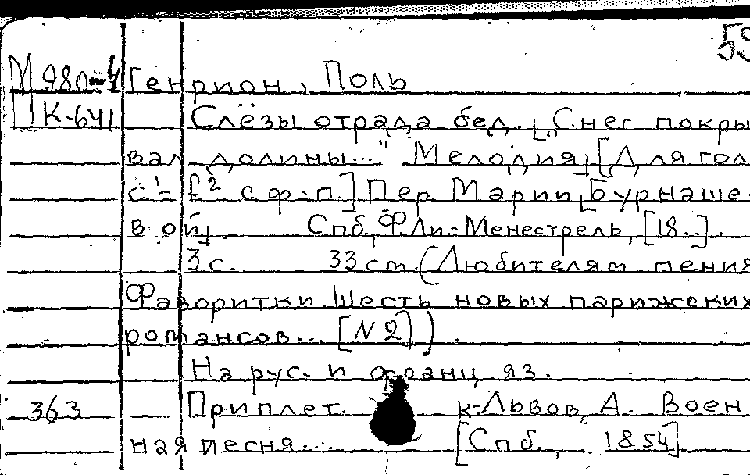 59
М 980-4 Генрион, Поль
П К-641 Слёзы отрада бед. [„Снег покры
вал долины..." Мелодия] [Для гол
с¹-f² с ф-п.] Пер. Марии [Бурнаше-
вой] Спб, Ф Ли-Менестрель, [18..].
3 с. 33 cm. (Любителям пения
Фаворитки. Шесть новых парижских
романсов... [№ 2]).
На рус. и франц яз.
363 Приплет. к: Львов, А. Воен
ная песня... [Спб., 1854]